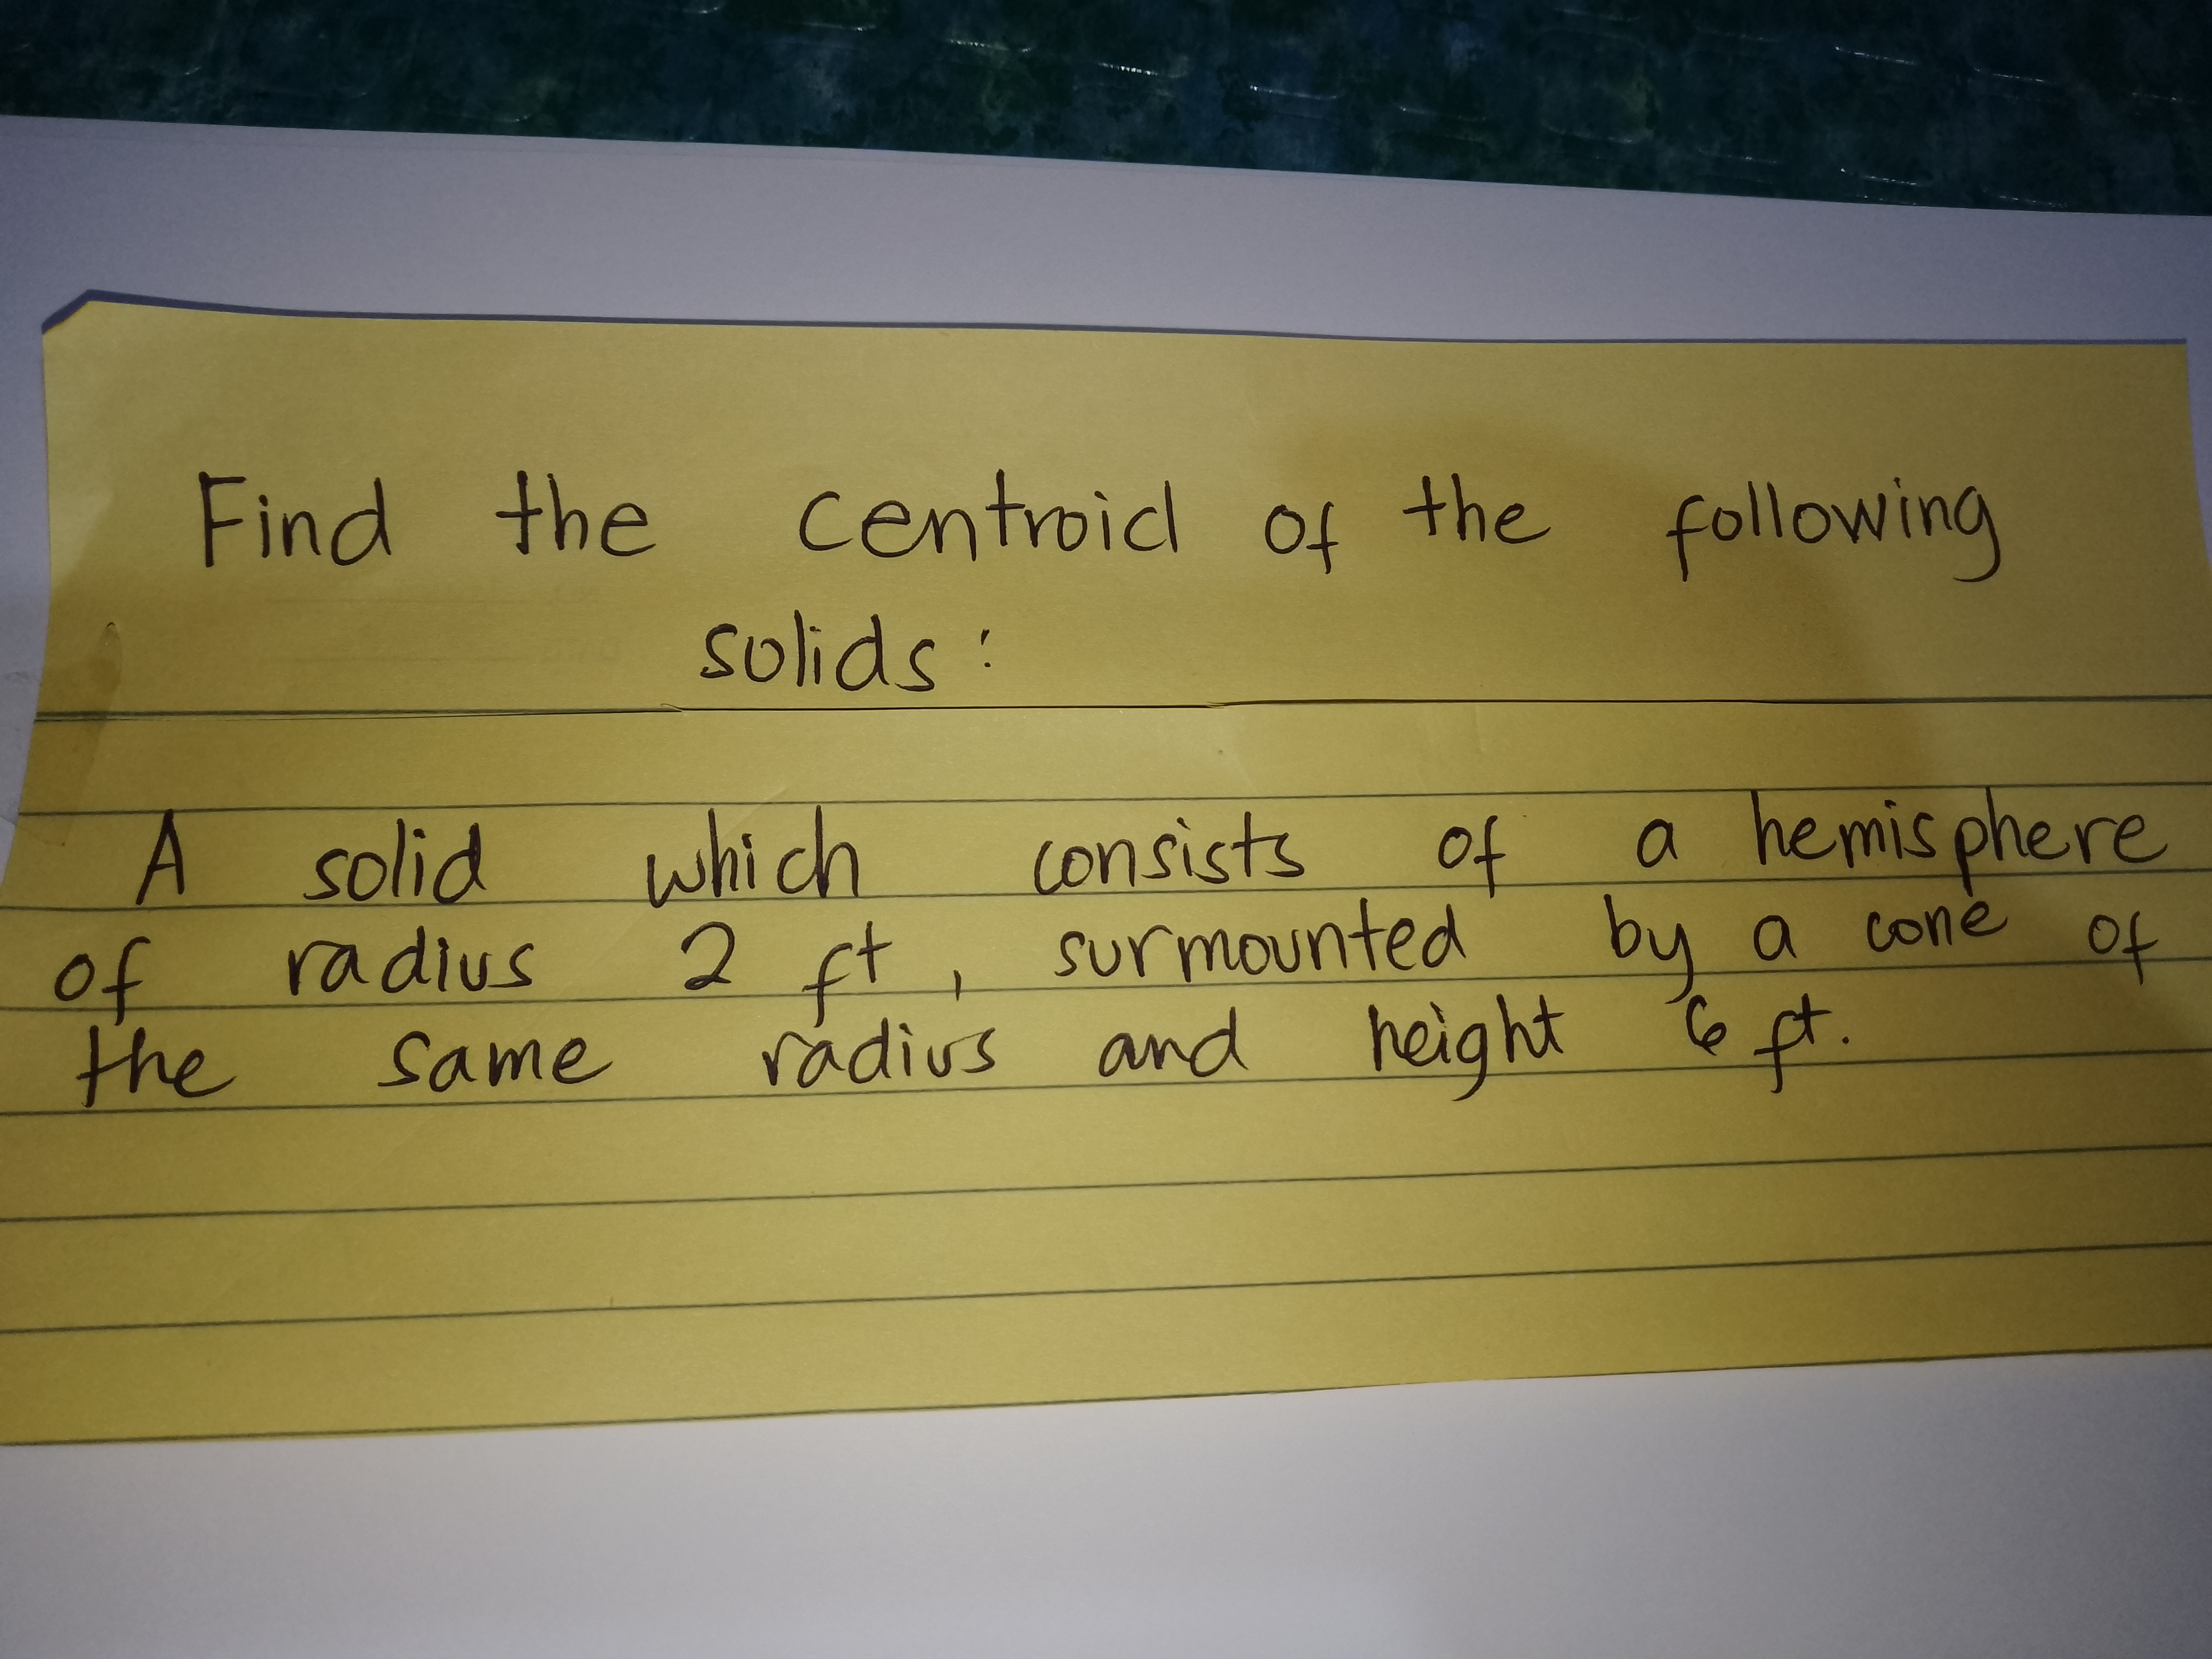 Find the centroid of the following
solids:
A solid which consists of a hemisphere
of radius 2 ft, surmounted by a cone of
the same radius and height 6 ft.